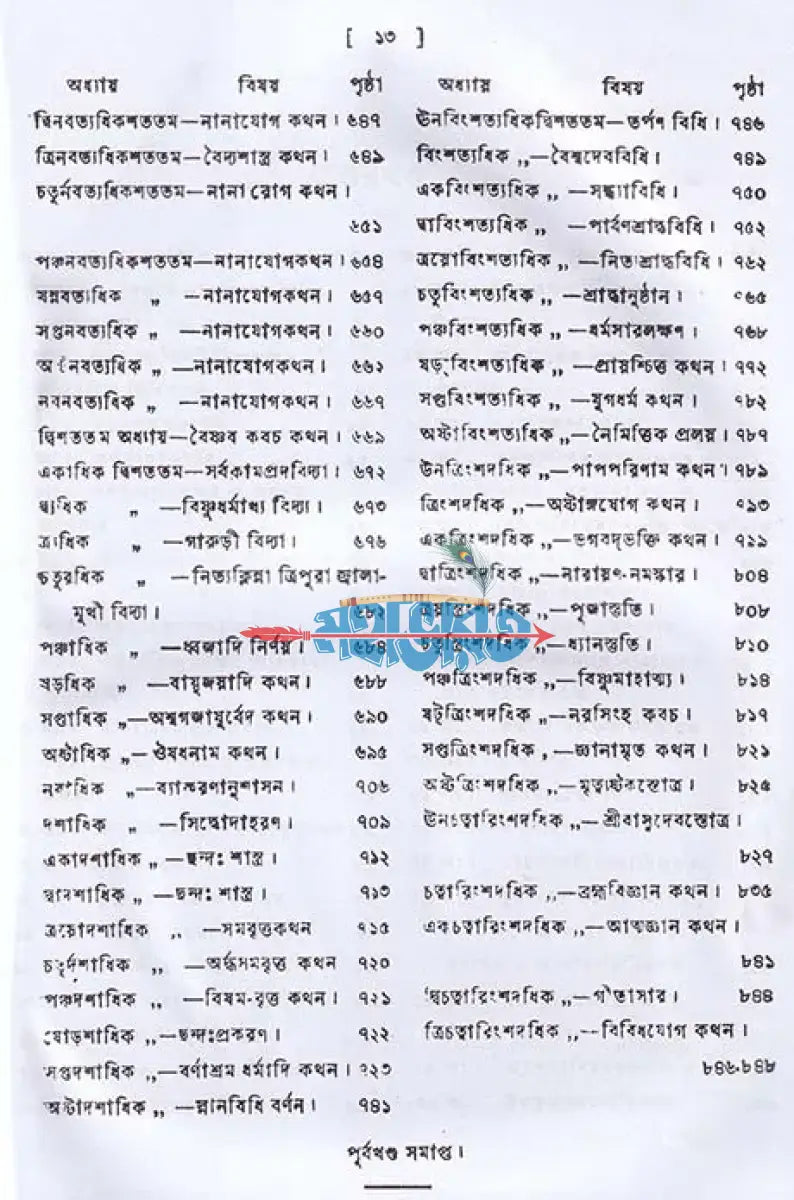 [ ১৩ ]
অধ্যায় বিষয় পৃষ্ঠা
দ্বিনবত্যধিকশততম—নানাযোগ কথন। ৬৪৭
ত্রিনবত্যধিকশততম—বৈদ্যশাস্ত্র কথন। ৬৪৯
চতুর্নবত্যধিকশততম—নানা রোগ কথন।
৬৫১
পঞ্চনবত্যধিকশততম—নানাযোগকথন। ৬৫৪
ষন্নবত্যধিক „ —নানাযোগকথন। ৬৫৭
সপ্তনবত্যধিক „ —নানাযোগকথন। ৬৬০
অষ্টনবত্যধিক „ —নানাযোগকথন। ৬৬১
নবনবত্যধিক „ —নানাযোগকথন। ৬৬৭
দ্বিশততম অধ্যায়—বৈষ্ণব কবচ কথন। ৬৬৯
একাধিক দ্বিশততম—সর্বকামপ্রদবিদ্যা। ৬৭২
দ্ব্যধিক „ —বিষ্ণুধর্মাখ্য বিদ্যা। ৬৭৩
ত্র্যধিক „ —গারুড়ী বিদ্যা। ৬৭৬
চতুরধিক „ —নিত্যক্লিন্না ত্রিপুরা জ্বালা-
মুখী বিদ্যা। ৬৮২
পঞ্চাধিক „ —ধ্বজাদি নির্ণয়। ৬৮৪
ষড়ধিক „ —বায়ুজয়াদি কথন। ৬৮৮
সপ্তাধিক „—অশ্বগজায়ুর্বেদ কথন। ৬৯০
অষ্টাধিক „—ঔষধনাম কথন। ৬৯৫
নবাধিক „—ব্যাকরণানুশাসন। ৭০৬
দশাধিক „ —সিদ্ধোদাহরণ। ৭০৯
একাদশাধিক „—ছন্দঃ শাস্ত্র। ৭১২
দ্বাদশাধিক „—ছন্দঃ শাস্ত্র। ৭১৩
ত্রয়োদশাধিক „ —সমবৃত্তকথন ৭১৫
চতুর্দশাধিক „ —অর্দ্ধসমবৃত্ত কথন ৭২০
পঞ্চদশাধিক „ —বিষম-বৃত্ত কথন। ৭২১
ষোড়শাধিক „—ছন্দঃপ্রকরণ। ৭২২
সপ্তদশাধিক „—বর্ণাশ্রম ধর্মাদি কথন। ৭২৩
অষ্টাদশাধিক „ —স্নানবিধি বর্ণন। ৭৪১
অধ্যায় বিষয় পৃষ্ঠা
ঊনবিংশত্যধিকদ্বিশততম—তর্পণ বিধি। ৭৪৬
বিংশত্যধিক „—বৈশ্বদেববিধি। ৭৪৯
একবিংশত্যধিক „ —সন্ধ্যাবিধি। ৭৫০
দ্বাবিংশত্যধিক „ —পার্বণশ্রাদ্ধবিধি। ৭৫২
ত্রয়োবিংশত্যধিক „ —নিত্যশ্রাদ্ধবিধি। ৭৬২
চতুর্বিংশত্যধিক „ —শ্রাদ্ধানুষ্ঠান। ৭৬৫
পঞ্চবিংশত্যধিক „ —ধর্মসারলক্ষণ। ৭৬৮
ষড়্‌বিংশত্যধিক „ —প্রায়শ্চিত্ত কথন। ৭৭২
সপ্তবিংশত্যধিক „ —যুগধর্ম কথন। ৭৮২
অষ্টাবিংশত্যধিক „ —নৈমিত্তিক প্রলয়। ৭৮৭
ঊনত্রিংশদধিক „—পাপপরিণাম কথন। ৭৮৯
ত্রিংশদধিক „—অষ্টাঙ্গযোগ কথন। ৭৯৩
একত্রিংশদধিক „—ভগবদ্ভক্তি কথন। ৭৯৯
দ্বাত্রিংশদধিক „—নারায়ণ-নমস্কার। ৮০৪
ত্রয়স্ত্রিংশদধিক „—পূজাস্তুতি। ৮০৮
চতুস্ত্রিংশদধিক „—ধ্যানস্তুতি। ৮১০
পঞ্চত্রিংশদধিক „—বিষ্ণুমাহাত্ম্য। ৮১৪
ষট্‌ত্রিংশদধিক „—নরসিংহ কবচ। ৮১৭
সপ্তত্রিংশদধিক „—জ্ঞানামৃত কথন। ৮২১
অষ্টত্রিংশদধিক „—মৃত্যুষ্টকস্তোত্র। ৮২৫
ঊনচত্বারিংশদধিক „—শ্রীবাসুদেবস্তোত্র।
৮২৭
চত্বারিংশদধিক „—ব্রহ্মবিজ্ঞান কথন। ৮৩৫
একচত্বারিংশদধিক „—আত্মজ্ঞান কথন।
৮৪১
দ্বিচত্বারিংশদধিক „—গীতাসার। ৮৪৪
ত্রিচত্বারিংশদধিক „—বিবিধযোগ কথন।
৮৪৬-৮৪৮
পূর্বখণ্ড সমাপ্ত।
মহাভারত